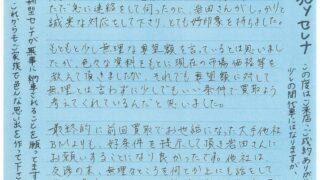 ただ急に連絡をして伺ったのに、岩田さんがしっかりと
誠実な対応をして下さり、とても好印象を持ちました。
もともと少し無理な要望額を言っているとは思いました
が、色々な資料をもとに現在の市場価格等を
教えて頂きましたが、それでも要望額に対して
無理とは言わずに少しでもいい条件で買取るよう
考えてくれているんだと思いました。
最終的に前回買取でお世話になった大手他社
BMよりも、好条件を提示して頂き岩田さんに
お願いすることになり良かったです。他社は、
セレナ
この度はご来店・ご成約ありが
少しの間代車にはなりますが、
新型セレナが無事に納車されることを願ってます
これからもご家族で色んな思い出を作って下さ